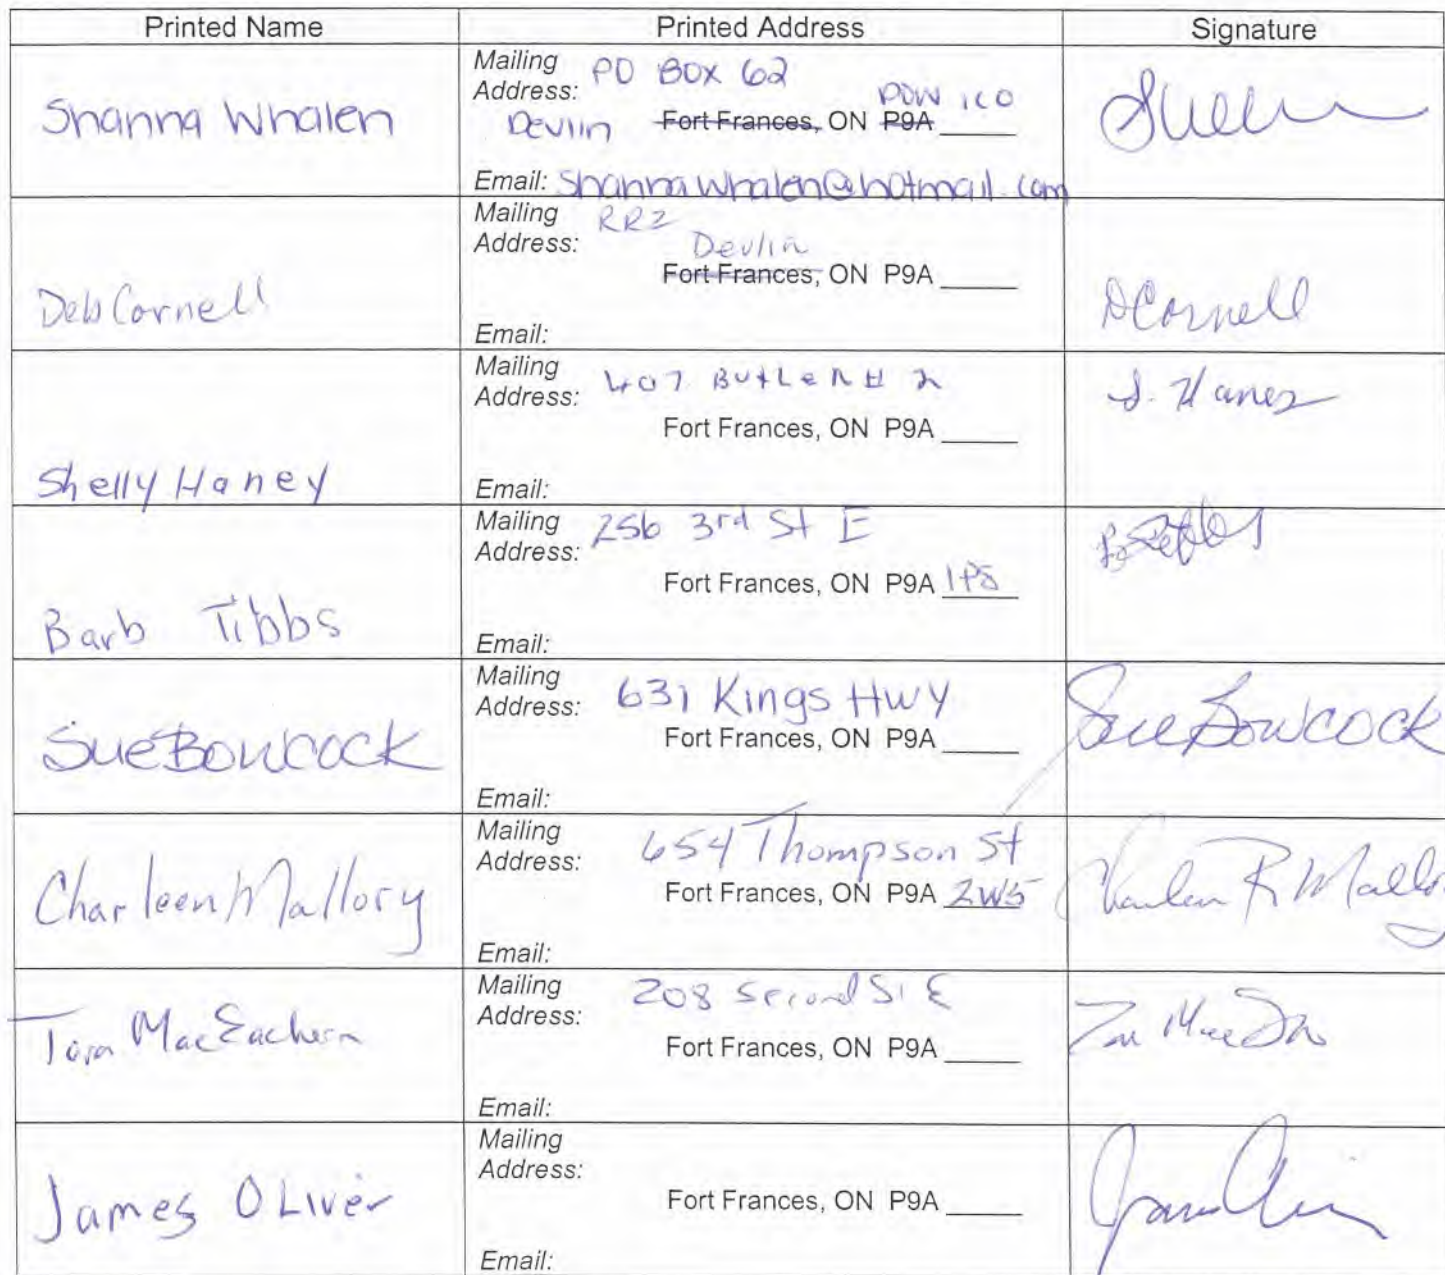 Printed Name Printed Address Signature
Shanna Whalen
Mailing Address: PO BOX 62
Devlin Fort Frances, ON P9A P0W 1C0
Email: shannawhalen@hotmail.com
Deb Cornell
Mailing Address: RR2
Devlin
Fort Frances, ON P9A ____
Email:
DCornell
Shelly Haney
Mailing Address: 407 Butler # 2
Fort Frances, ON P9A ____
Email:
S. Haney
Barb Tibbs
Mailing Address: 256 3rd St E
Fort Frances, ON P9A 1P8
Email:
Sue Bowcock
Mailing Address: 631 Kings Hwy
Fort Frances, ON P9A ____
Email:
Sue Bowcock
Charleen Mallory
Mailing Address: 654 Thompson St
Fort Frances, ON P9A 2W5
Email:
Charleen R Mallory
Tara MacEachern
Mailing Address: 208 Second St E
Fort Frances, ON P9A ____
Email:
James OLiver
Mailing Address:
Fort Frances, ON P9A ____
Email: